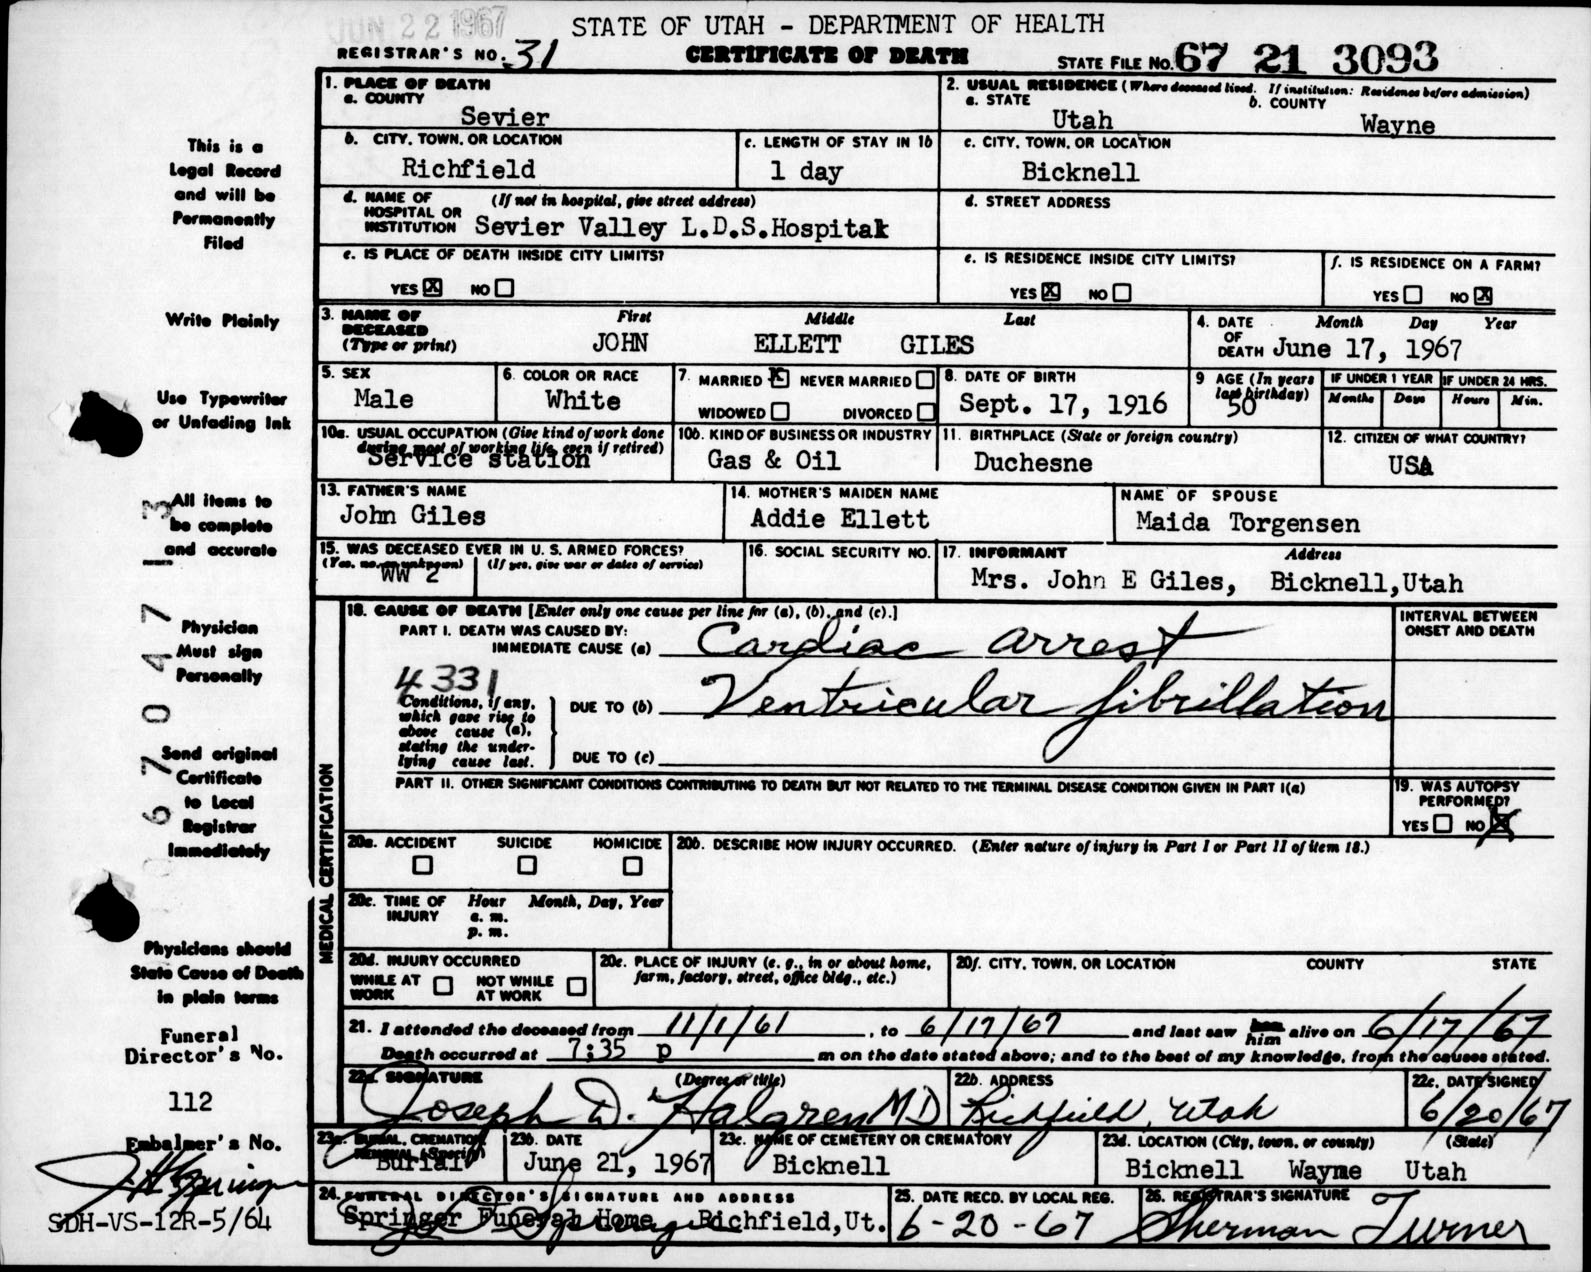 JUN 22 1967
STATE OF UTAH - DEPARTMENT OF HEALTH
REGISTRAR'S NO. 31
CERTIFICATE OF DEATH
STATE FILE NO. 67 21 3093
This is a
Legal Record
and will be
Permanently
Filed
Write Plainly
Use Typewriter
or Unfading Ink
All items to
be complete
and accurate
Physician
Must sign
Personally
Send original
Certificate
to Local
Registrar
Immediately
Physicians should
State Cause of Death
in plain terms
Funeral
Director's No.
112
Embalmer's No.
SDH-VS-12R-5/64
1. PLACE OF DEATH
a. COUNTY
Sevier
2. USUAL RESIDENCE (Where deceased lived. If institution: Residence before admission)
a. STATE
Utah
b. COUNTY
Wayne
b. CITY, TOWN, OR LOCATION
Richfield
c. LENGTH OF STAY IN 1b
1 day
c. CITY, TOWN, OR LOCATION
Bicknell
d. NAME OF HOSPITAL OR INSTITUTION (If not in hospital, give street address)
Sevier Valley L.D.S.Hospital
d. STREET ADDRESS
e. IS PLACE OF DEATH INSIDE CITY LIMITS?
YES X NO
e. IS RESIDENCE INSIDE CITY LIMITS?
YES X NO
f. IS RESIDENCE ON A FARM?
YES NO X
3. NAME OF DECEASED (Type or print)
First Middle Last
JOHN ELLETT GILES
4. DATE OF DEATH
Month Day Year
June 17, 1967
5. SEX
Male
6. COLOR OR RACE
White
7. MARRIED X NEVER MARRIED
WIDOWED DIVORCED
8. DATE OF BIRTH
Sept. 17, 1916
9 AGE (In years last birthday)
50
IF UNDER 1 YEAR
Months Days
IF UNDER 24 HRS.
Hours Min.
10a. USUAL OCCUPATION (Give kind of work done during most of working life, even if retired)
Service station
10b. KIND OF BUSINESS OR INDUSTRY
Gas & Oil
11. BIRTHPLACE (State or foreign country)
Duchesne
12. CITIZEN OF WHAT COUNTRY?
USA
13. FATHER'S NAME
John Giles
14. MOTHER'S MAIDEN NAME
Addie Ellett
NAME OF SPOUSE
Maida Torgensen
15. WAS DECEASED EVER IN U. S. ARMED FORCES?
(Yes, no, or unknown) (If yes, give war or dates of service)
WW 2
16. SOCIAL SECURITY NO.
17. INFORMANT Address
Mrs. John E Giles, Bicknell,Utah
MEDICAL CERTIFICATION
18. CAUSE OF DEATH [Enter only one cause per line for (a), (b), and (c).]
PART I. DEATH WAS CAUSED BY:
IMMEDIATE CAUSE (a) Cardiac arrest
4331
Conditions, if any, which gave rise to above cause (a), stating the underlying cause last.
DUE TO (b) Ventricular fibrillation
DUE TO (c)
INTERVAL BETWEEN
ONSET AND DEATH
PART II. OTHER SIGNIFICANT CONDITIONS CONTRIBUTING TO DEATH BUT NOT RELATED TO THE TERMINAL DISEASE CONDITION GIVEN IN PART I(a)
19. WAS AUTOPSY
PERFORMED?
YES NO X
20a. ACCIDENT SUICIDE HOMICIDE
20b. DESCRIBE HOW INJURY OCCURRED. (Enter nature of injury in Part I or Part II of item 18.)
20c. TIME OF INJURY
Hour Month, Day, Year
a. m.
p. m.
20d. INJURY OCCURRED
WHILE AT WORK NOT WHILE AT WORK
20e. PLACE OF INJURY (e. g., in or about home, farm, factory, street, office bldg., etc.)
20f. CITY, TOWN, OR LOCATION COUNTY STATE
21. I attended the deceased from 11/1/61, to 6/17/67 and last saw her him alive on 6/17/67
Death occurred at 7:35 p m on the date stated above; and to the best of my knowledge, from the causes stated.
22a. SIGNATURE (Degree or title)
Joseph D. Halgren MD
22b. ADDRESS
Richfield, Utah
22c. DATE SIGNED
6/20/67
23a. BURIAL, CREMATION, REMOVAL (Specify)
Burial
23b. DATE
June 21, 1967
23c. NAME OF CEMETERY OR CREMATORY
Bicknell
23d. LOCATION (City, town, or county) (State)
Bicknell Wayne Utah
24. FUNERAL DIRECTOR'S SIGNATURE AND ADDRESS
Springer Funeral Home Richfield,Ut.
25. DATE RECD. BY LOCAL REG.
6-20-67
26. REGISTRAR'S SIGNATURE
Sherman Turner